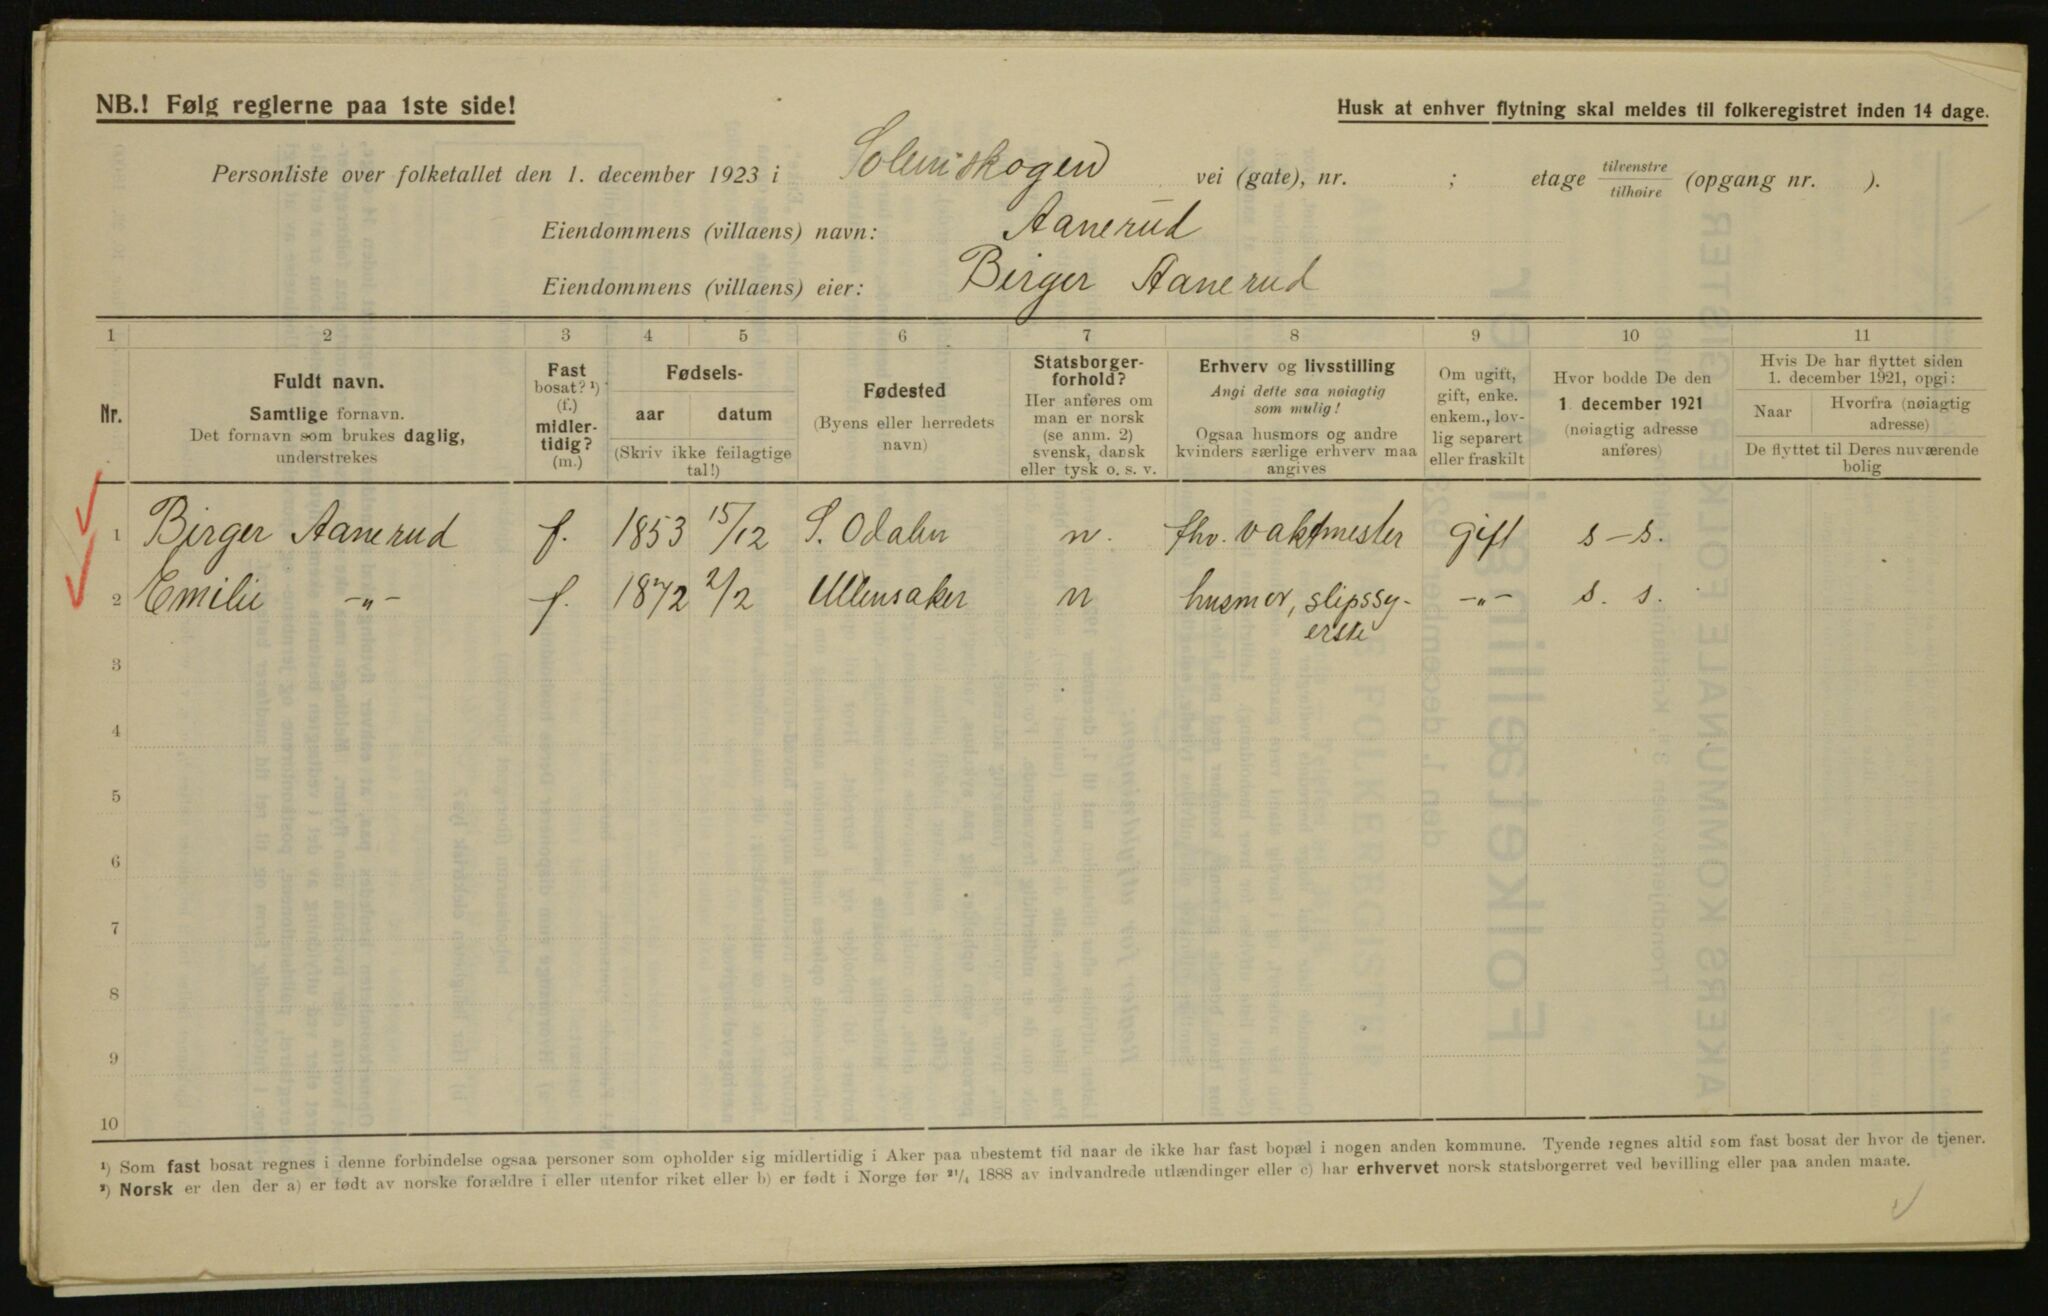 NB.! Følg reglerne paa 1ste side!
Husk at enhver flytning skal meldes til folkeregistret inden 14 dage.
Personliste over folketallet den 1. december 1923 i Solemskogen vei (gate), nr. ; etage tilvenstre / tilhøire (opgang nr. ).
Eiendommens (villaens) navn: Aanerud
Eiendommens (villaens) eier: Birger Aanerud
1 2 3 4 5 6 7 8 9 10 11
Nr.
Fuldt navn.
Samtlige fornavn.
Det fornavn som brukes daglig,
understrekes
Fast
bosat? ¹)
(f.)
midler-
tidig?
(m.)
Fødsels-
aar datum
(Skriv ikke feilagtige
tal!)
Fødested
(Byens eller herredets
navn)
Statsborger-
forhold?
Her anføres om
man er norsk
(se anm. 2)
svensk, dansk
eller tysk o. s. v.
Erhverv og livsstilling
Angi dette saa nøiagtig
som mulig!
Ogsaa husmors og andre
kvinders særlige erhverv maa
angives
Om ugift,
gift, enke.
enkem., lov-
lig separert
eller fraskilt
Hvor bodde De den
1 december 1921
(nøiagtig adresse
anføres)
Hvis De har flyttet siden
1. december 1921, opgi:
Naar Hvorfra (nøiagtig
adresse)
De flyttet til Deres nuværende
bolig
1 Birger Aanerud f. 1853 15/12 S. Odalen n. fhv. vaktmester Gift s-s.
2 Emilie -„- f. 1872 2/2 Ullensaker n husmor, slipssy- -„- s. s.
erske
3
4
5
6
7
8
9
10
¹) Som fast bosat regnes i denne forbindelse ogsaa personer som opholder sig midlertidig i Aker paa ubestemt tid naar de ikke har fast bopæl i nogen anden kommune. Tyende regnes altid som fast bosat der hvor de tjener.
²) Norsk er den der a) er født av norske forældre i eller utenfor riket eller b) er født i Norge før ²¹/₄ 1888 av indvandrede utlændinger eller c) har erhvervet norsk statsborgerret ved bevilling eller paa anden maate.